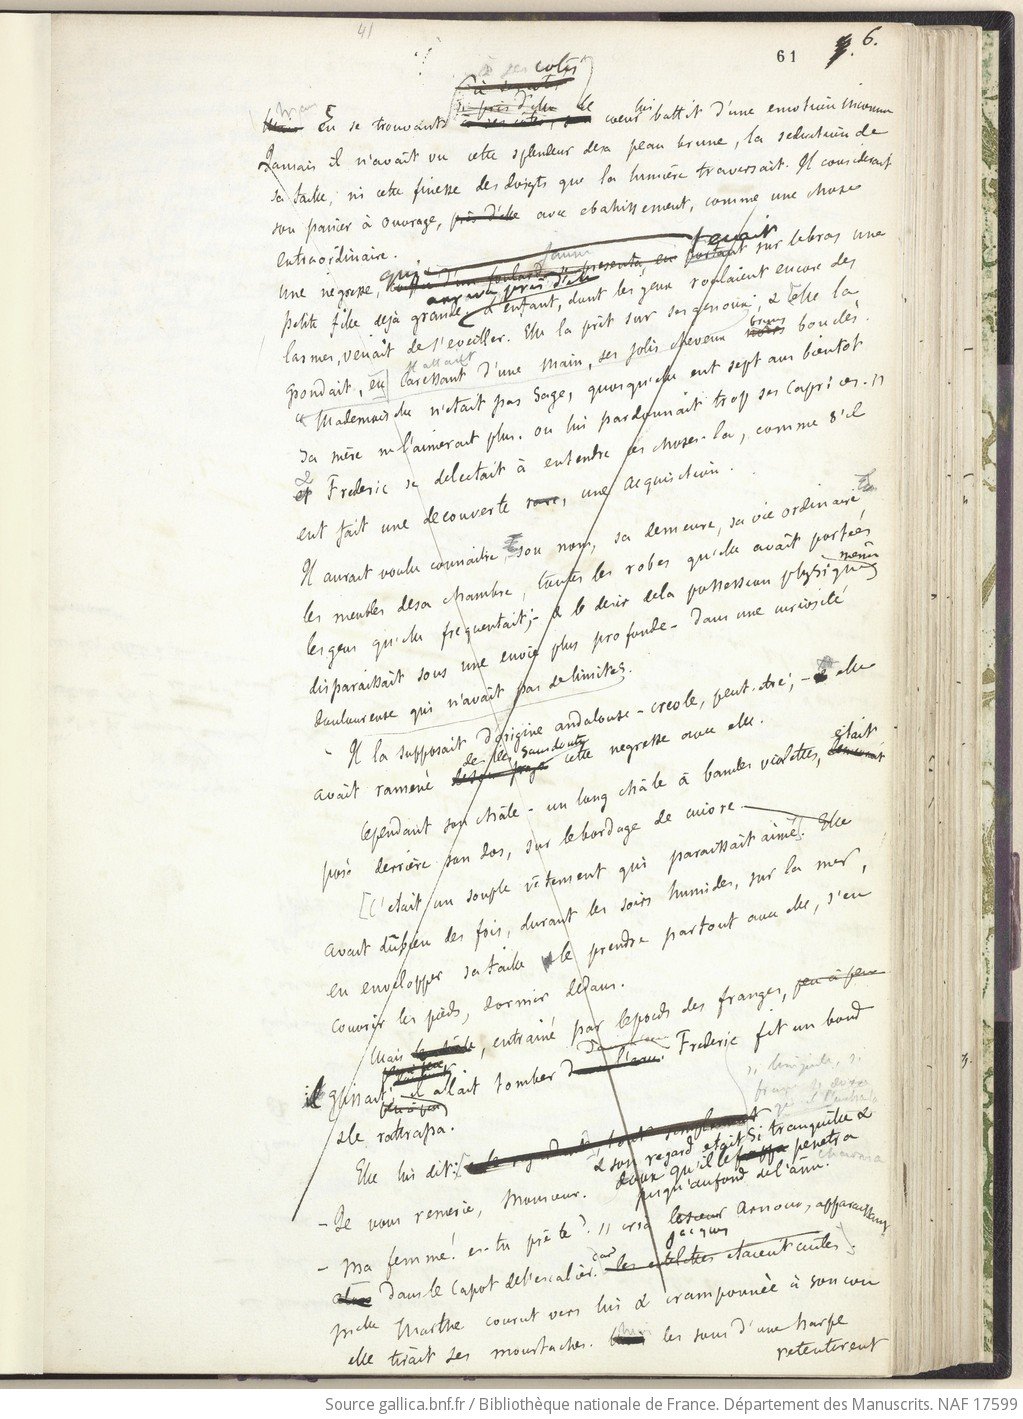 41
61
6.
à ses côtés
En se trouvant le cœur lui battit d'une emotion inconnue
Jamais il n'avait vu cette splendeur de sa peau brune, la seduction de
sa taille, ni cette finesse des doigts que la lumière traversait. Il considerait
son panier à ouvrage, près d'elle avec ebahissement, comme une chose
extraordinaire.
jaune tenait
Une négresse, qui coiffée d'un foulard se presenta, en portant sur le bras une
arriva près d'elle
petite fille dejà grande. L'enfant, dont les yeux roulaient encore des
larmes, venait de s'eveiller. Elle la prit sur ses genoux, & Elle la
grondait, en caressant d'une main, ses jolis cheveux noirs bouclés.
bruns
" Mademoiselle n'etait pas sage, quoiqu'elle eut sept ans bientôt
sa mère ne l'aimerait plus. on lui pardonnait trop ses caprices. "
et Frederic se delectait à entendre ces choses-là, comme s'il
eut fait une decouverte rare, une acquisition.
Il aurait voulu connaitre son nom, sa demeure, sa vie ordinaire
les meubles de sa chambre, toutes les robes qu'elle avait portées,
les gens qu'elle frequentait; - & le desir de la possession physique
même
disparaissait sous une envie plus profonde - dans une curiosité
douloureuse qui n'avait pas de limites.
- Il la supposait d'origine andalouse - creole, peut-etre; - & elle
des îles, sans doute
avait ramené cette negresse avec elle.
Cependant son châle - un long châle à bandes violettes, était
posé derrière son dos, sur le bordage de cuivre -
[C'etait un souple vêtement qui paraissait aimé]. Elle
avait dû bien des fois, durant les soirs humides, sur la mer,
en envelopper sa taille & le prendre partout avec elle, s'en
couvrir les pieds, dormir dedans.
Mais, entrainé par le poids des franges, peu à peu
il glissait, il allait tomber Frederic fit un bond
peu à peu
& le rattrapa.
Elle lui dit:
& son regard etait si tranquille &
- Je vous remercie, Monsieur. doux qu'il le penetra
jusqu'au fond de l'âme.
- Ma femme! es-tu prête? " cria le sieur Arnoux, apparaissant
Jacques
dans le capot de l'escalier. les cotelettes etaient cuites
Melle Marthe courut vers lui & cramponnée à son cou
elle tirait ses moustaches. les sons d'une harpe
retentirent
Source gallica.bnf.fr / Bibliothèque nationale de France. Département des Manuscrits. NAF 17599